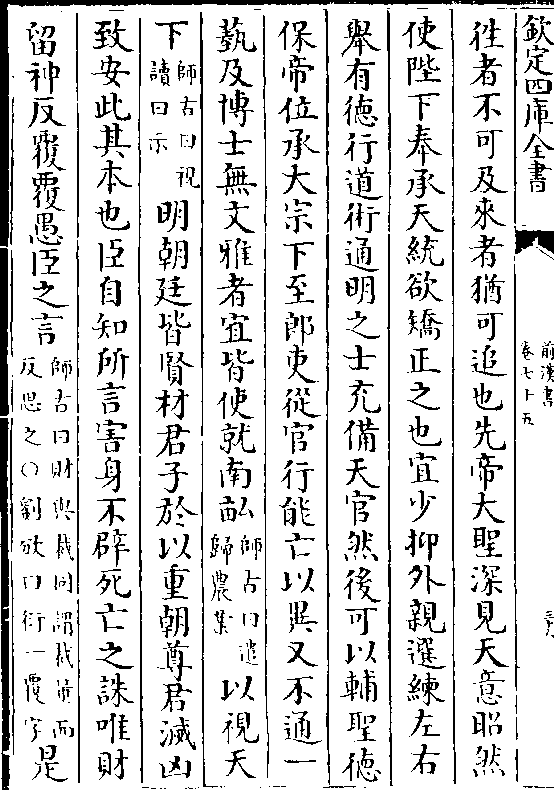 欽定四庫全書
前漢書
卷七十五
徃者不可及來者猶可追也先帝大聖深見天意昭然
使陛下奉承天統欲矯正之也宜少抑外親選練左右
舉有德行道術通明之士充備天官然後可以輔聖德
保帝位承大宗下至郎吏從官行能亡以異又不通一
藝及博士無文雅者宜皆使就南畝師古曰遣歸農業以視天
下師古曰視讀曰示明朝廷皆賢材君子於以重朝尊君滅凶
致安此其本也臣自知所言害身不辟死亡之誅唯財
留神反覆覆愚臣之言師古曰財與裁同謂裁量而反思之○劉攽曰衍一覆字是